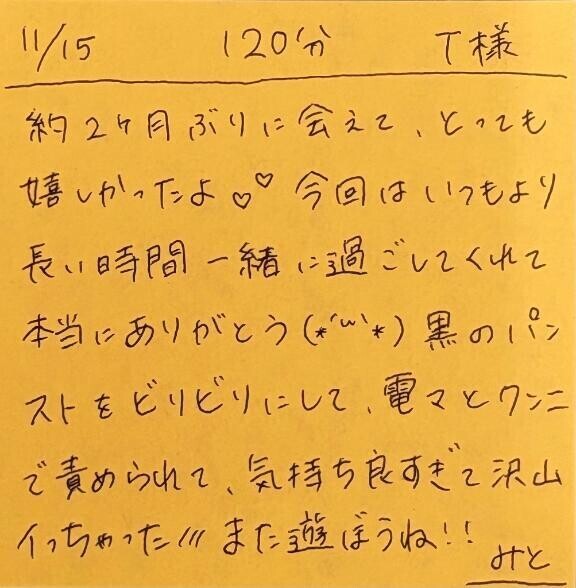 11/15 120分 T様
約2ヶ月ぶりに会えて、とっても
嬉しかったよ♡♡ 今回はいつもより
長い時間一緒に過ごしてくれて
本当にありがとう(*´ω`*)黒のパン
ストをビリビリにして、電マとクンニ
で責められて、気持ち良すぎて沢山
イっちゃった/// また遊ぼうね!!
みと